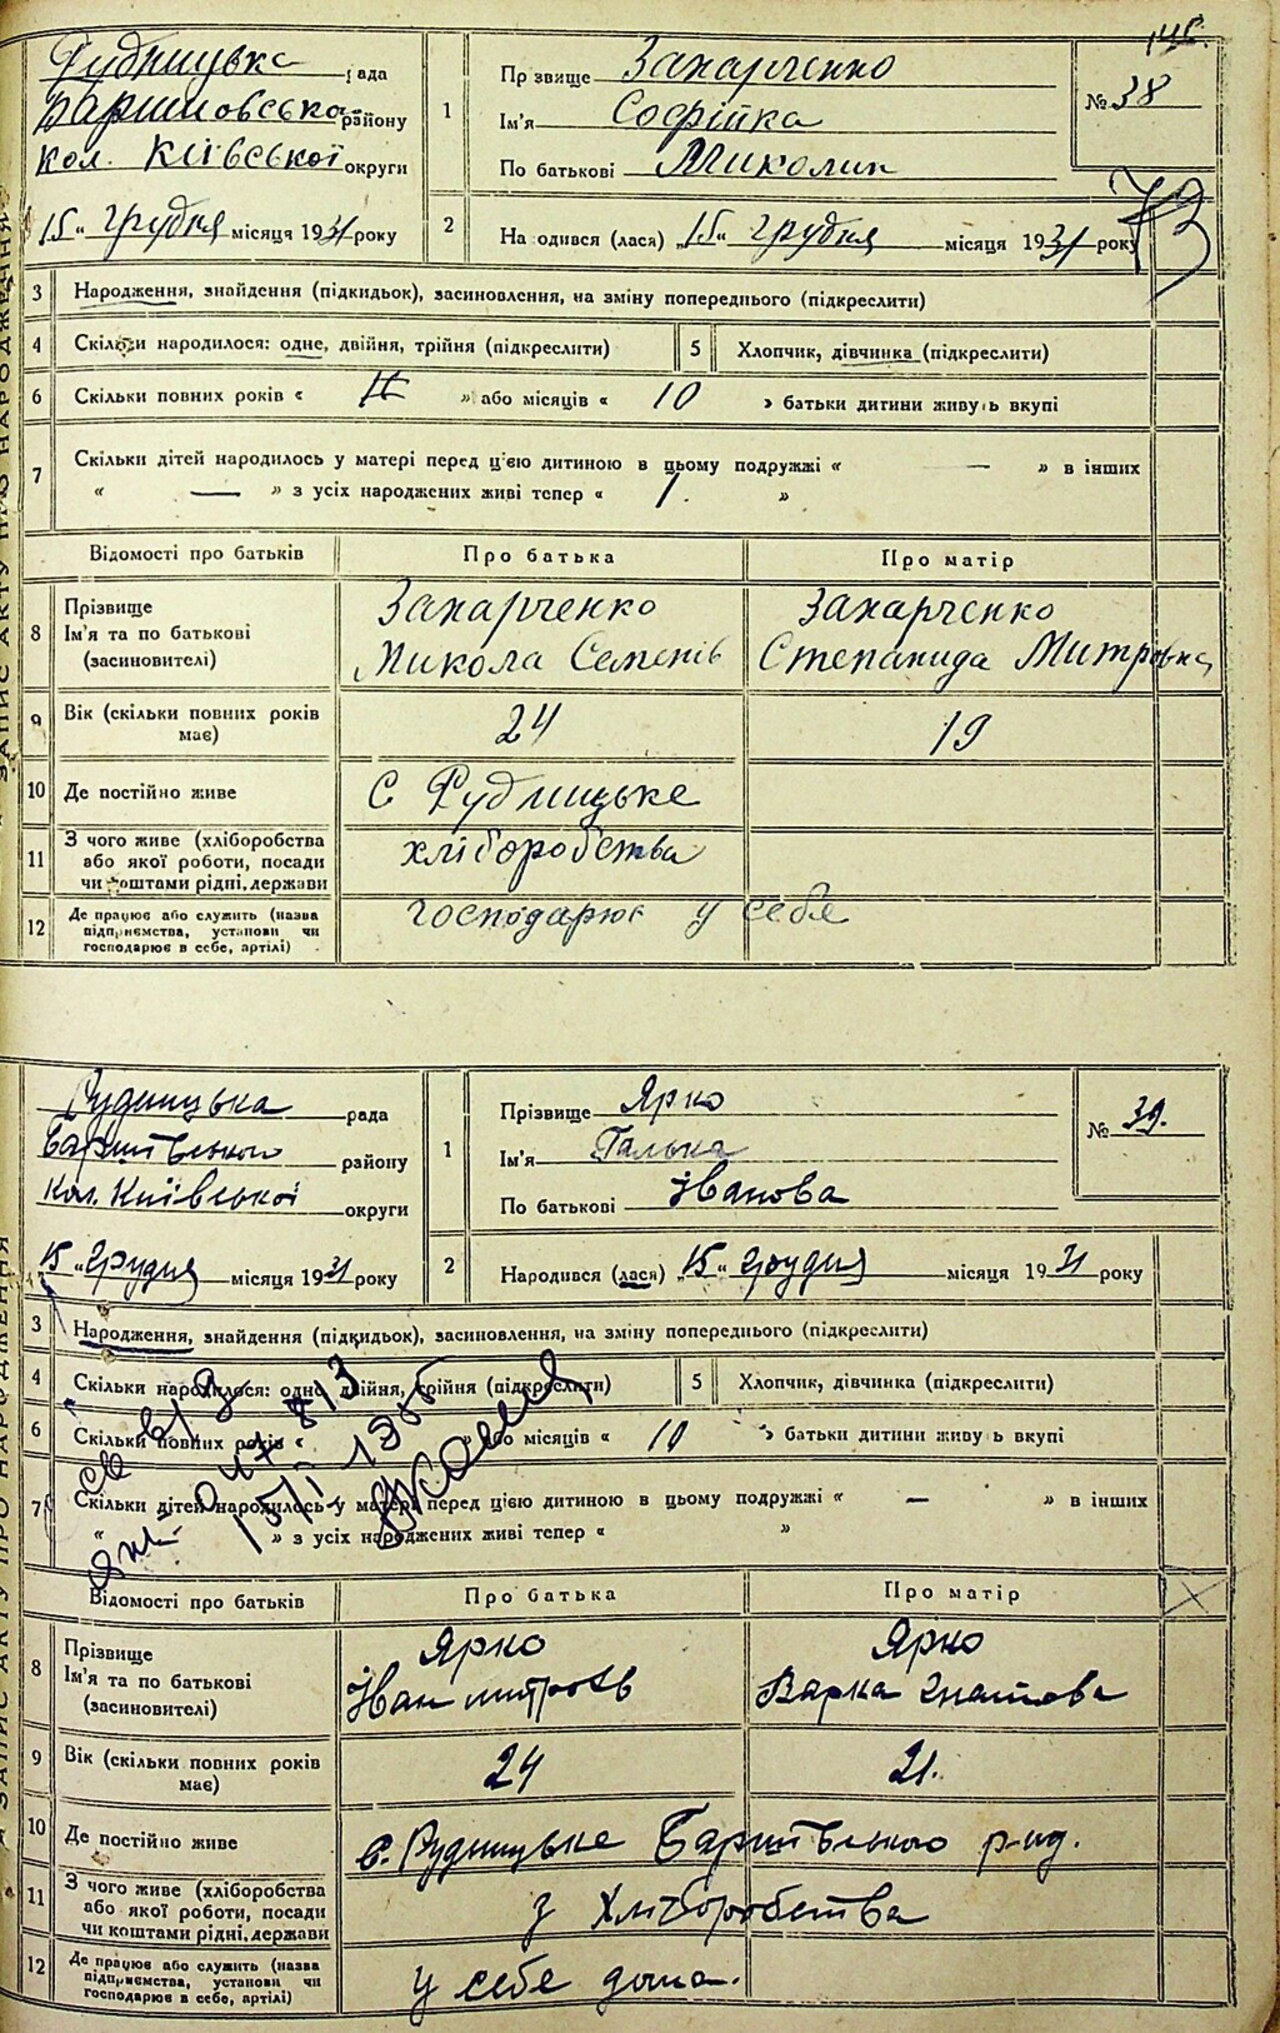 146.
Рудницька рада
Баришовсько району
кол. Київської округи
15 „ грудня місяця 1931 року
1
Прізвище Захарченко
Ім'я Софійка
По батькові Миколин
№ 38
73
2
На одився (лася) „15" грудня місяця 1931 року
3 Народження, знайдення (підкидьок), засиновлення, на зміну попереднього (підкреслити)
4 Скільки народилося: одне, двійня, трійня (підкреслити) 5 Хлопчик, дівчинка (підкреслити)
6 Скільки повних років « » або місяців « 10 » батьки дитини живуть вкупі
7 Скільки дітей народилось у матері перед ц'єю дитиною в цьому подружжі « — » в інших
« — » з усіх народжених живі тепер « 1. »
Відомості про батьків Про батька Про матір
8 Прізвище Захарченко Захарченко
Ім'я та по батькові
(засиновителі) Микола Семенів Степанида Митрівна
9 Вік (скільки повних років має) 24 19
10 Де постійно живе с Рудницьке
11 З чого живе (хліборобства
або якої роботи, посади
чи коштами рідні, держави
хліборобства
12 Де працює або служить (назва
підприємства, установи чи
господарює в себе, артілі)
господарює у себе
ЗАПИС АКТУ ПРО НАРОДЖЕННЯ
Рудницька рада
Баришівського району
кол. Київської округи
„15" грудня місяця 1931 року
1
Прізвище Ярко
Ім'я Галька
По батькові Іванова
№ 39.
2
Народився (лася) „15" грудня місяця 1931 року
3 Народження, знайдення (підкидьок), засиновлення, на зміну попереднього (підкреслити)
4 Скільки народилося: одно, двійня, трійня (підкреслити) 5 Хлопчик, дівчинка (підкреслити)
6 Скільки повних років « » або місяців « 10 » батьки дитини живуть вкупі
7 Скільки дітей народилось у матері перед цією дитиною в цьому подружжі « — » в інших
« » з усіх народжених живі тепер « »
Відомості про батьків Про батька Про матір
8 Прізвище Ярко Ярко
Ім'я та по батькові
(засиновителі) Іван Митров Варка Гнатова
9 Вік (скільки повних років має) 24 21.
10 Де постійно живе с. Рудницьке Баришівського р-ну.
11 З чого живе (хліборобства
або якої роботи, посади
чи коштами рідні, держави
з хліборобства
12 Де працює або служить (назва
підприємства, установи чи
господарює в себе, артілі)
у себе дома.
ЗАПИС АКТУ ПРО НАРОДЖЕННЯ